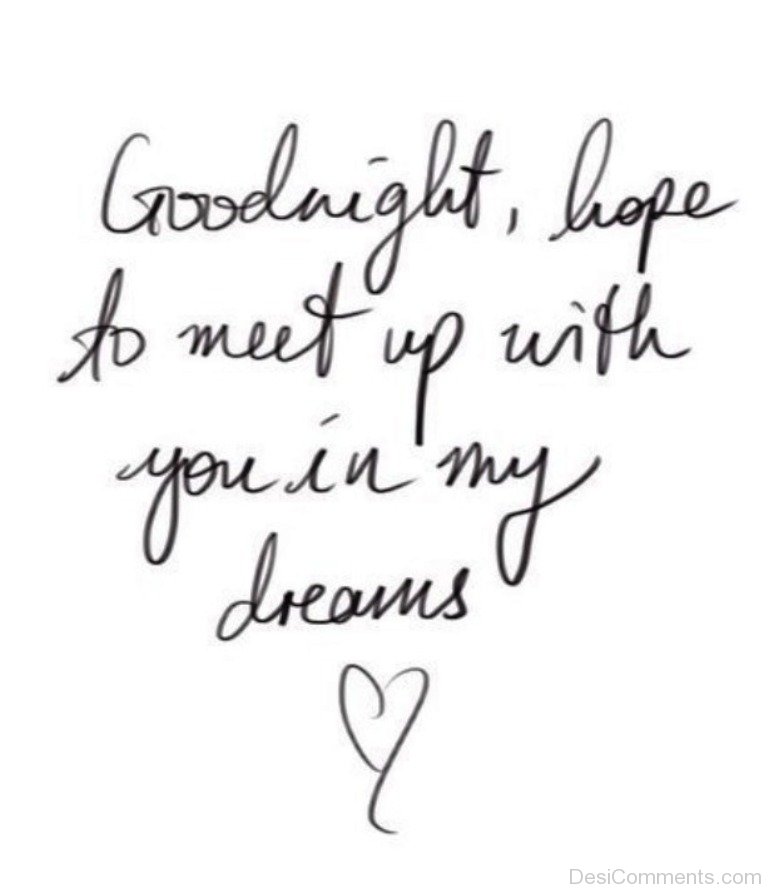 Goodnight, hope
to meet up with
you in my
dreams
DesiComments.com